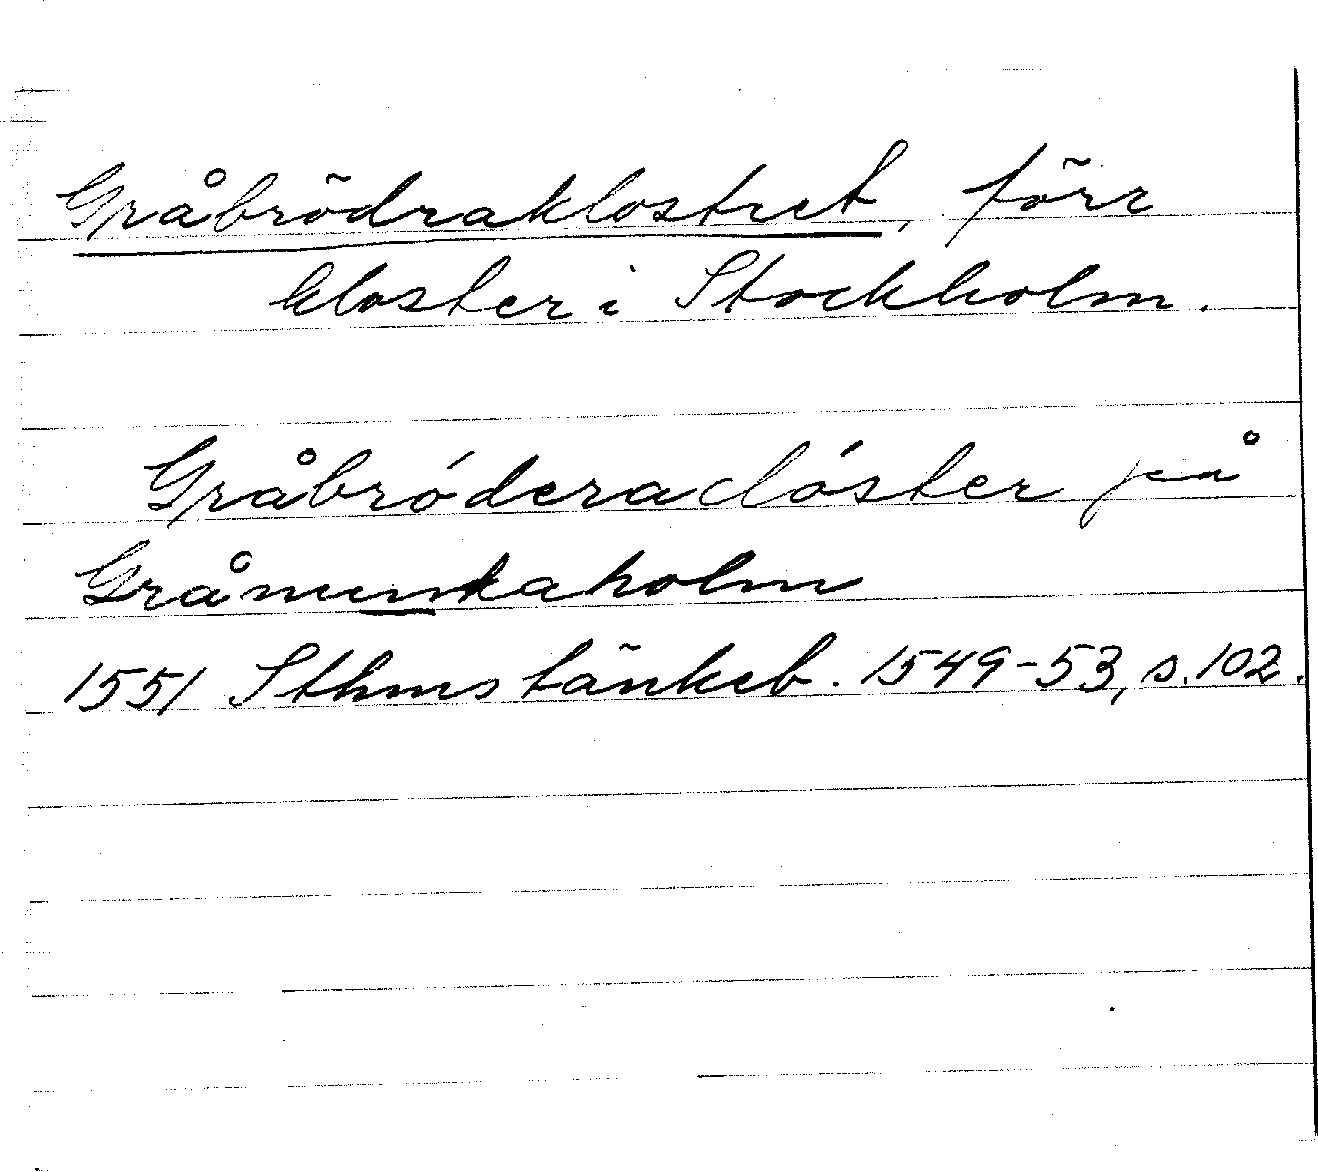 Gråbrödraklostret, förr
kloster i Stockholm.
Gråbróderaclóster på
Gråmunkaholm
1551 Sthms tänkeb. 1549-53, s. 102.